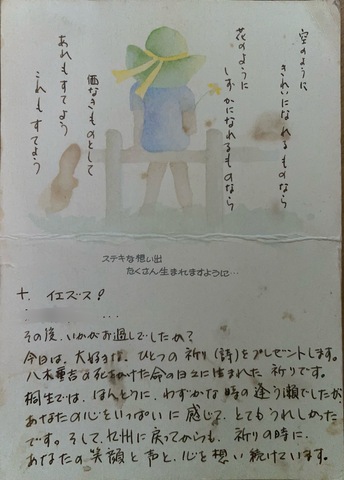 空のように
きれいになれるものなら
花のように
しずかになれるものなら
価なきものとして
あれもすてよう
これもすてよう
ステキな想い出
たくさん生まれますように…
十. イエズス!
その後、いかがお過しでしたか?
今日は、大好きな、ひとつの祈り(詩)をプレゼントします。
八木重吉の死をかけた命の日々に生まれた祈りです。
桐生では、ほんとうに、わずかな時の逢う瀬でしたが、
あなたの心をいっぱいに感じて、とてもうれしかった
です。そして、九州に戻ってからも、祈りの時に、
あなたの笑顔と声と、心を想い続けています。